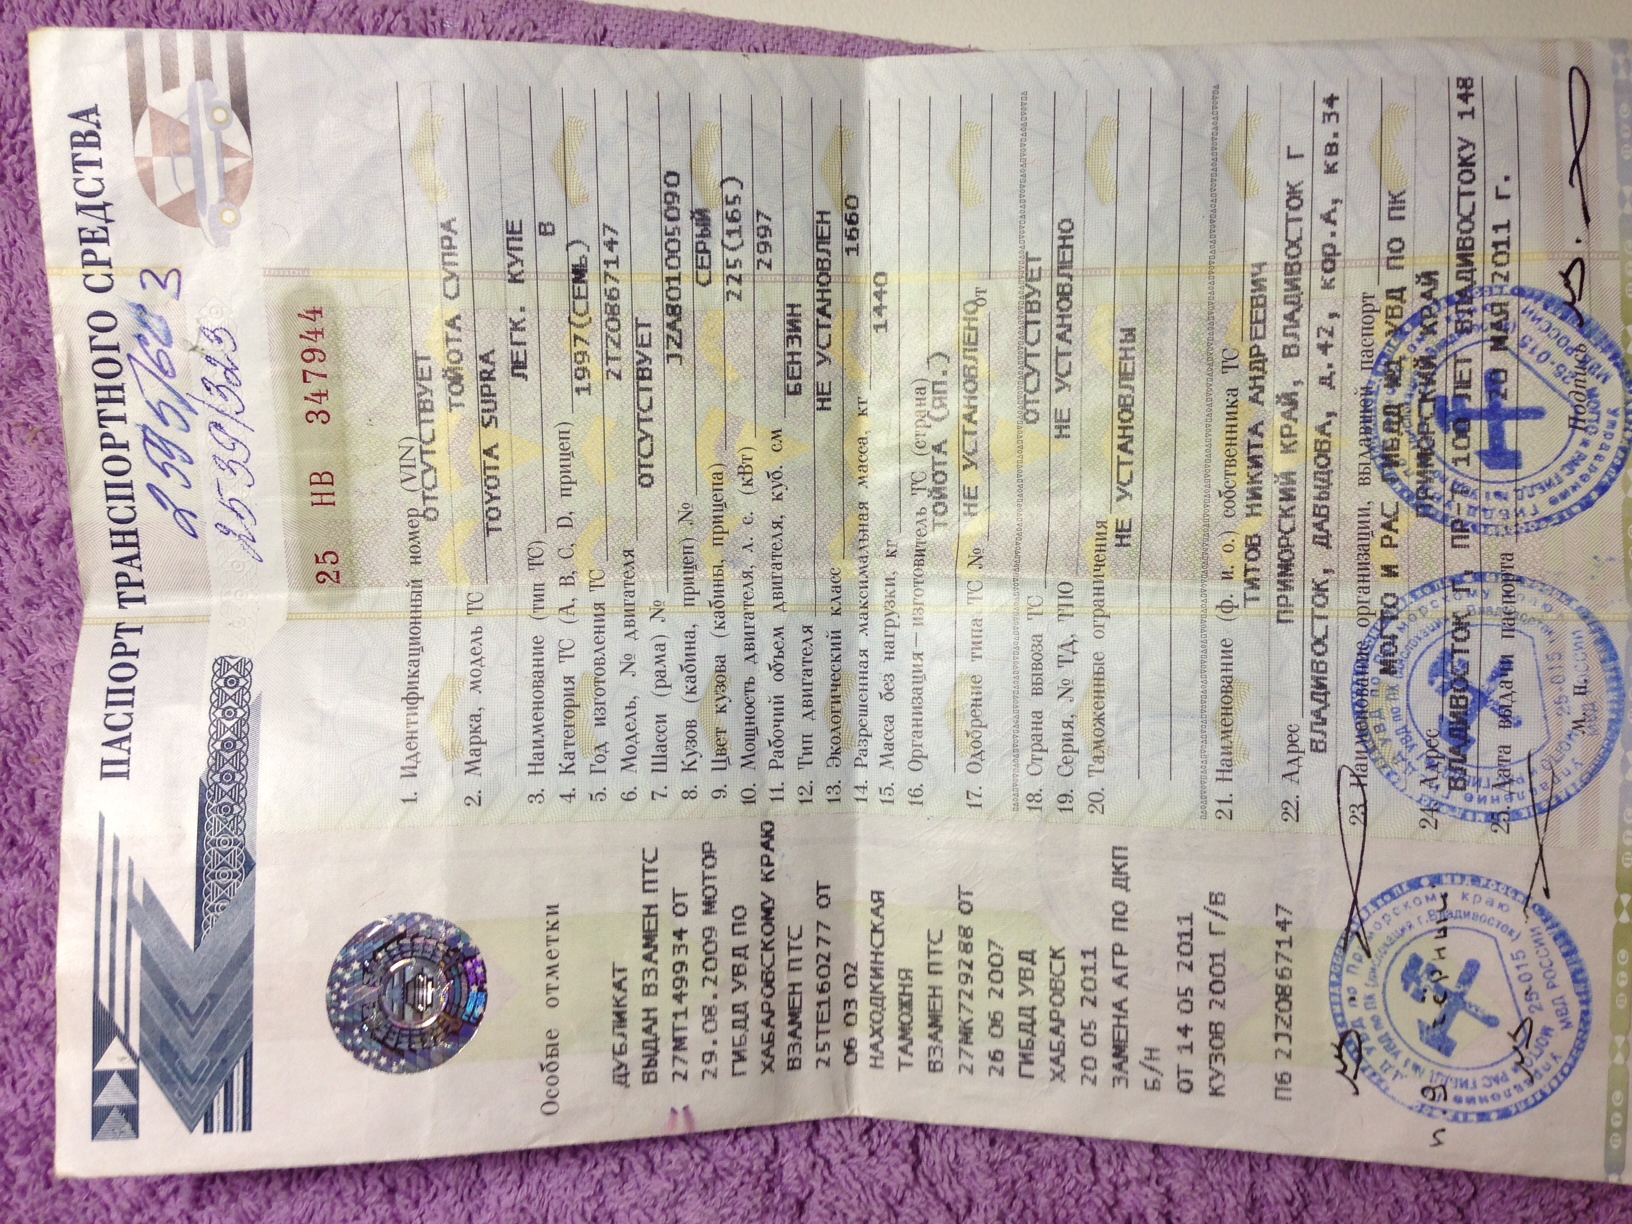 ПАСПОРТ ТРАНСПОРТНОГО СРЕДСТВА
2595/603
2539/323
25 НВ 347944
1. Идентификационный номер (VIN)
ОТСУТСТВУЕТ
2. Марка, модель ТС ТОЙОТА СУПРА
TOYOTA SUPRA
3. Наименование (тип ТС) ЛЕГК. КУПЕ
4. Категория ТС (А, В, С, D, прицеп) В
5. Год изготовления ТС 1997(СЕМЬ)
6. Модель, № двигателя 2TZ0867147
7. Шасси (рама) № ОТСУТСТВУЕТ
8. Кузов (кабина, прицеп) № JZA801005090
9. Цвет кузова (кабины, прицепа) СЕРЫЙ
10. Мощность двигателя, л. с. (кВт) 225(165)
11. Рабочий объем двигателя, куб. см 2997
12. Тип двигателя БЕНЗИН
13. Экологический класс НЕ УСТАНОВЛЕН
14. Разрешенная максимальная масса, кг 1660
15. Масса без нагрузки, кг 1440
16. Организация – изготовитель ТС (страна)
ТОЙОТА (ЯП.)
17. Одобрение типа ТС № НЕ УСТАНОВЛЕНО от
18. Страна вывоза ТС ОТСУТСТВУЕТ
19. Серия, № ТД, ТПО НЕ УСТАНОВЛЕНО
20. Таможенные ограничения
НЕ УСТАНОВЛЕНЫ
21. Наименование (ф. и. о.) собственника ТС
ТИТОВ НИКИТА АНДРЕЕВИЧ
22. Адрес ПРИМОРСКИЙ КРАЙ, ВЛАДИВОСТОК Г
ВЛАДИВОСТОК, ДАВЫДОВА, д.42, кор.А, кв.34
23. Наименование организации, выдавшей паспорт
МОТО И РАС ГИБДД УВД ПО ПК
24. Адрес ПРИМОРСКИЙ КРАЙ
ВЛАДИВОСТОК Г, ПР-Т 100 ЛЕТ ВЛАДИВОСТОКУ 148
25. Дата выдачи паспорта 20 МАЯ 2011 г.
М. П. Подпись
Особые отметки
ДУБЛИКАТ
ВЫДАН ВЗАМЕН ПТС
27МТ149934 ОТ
29.08.2009 МОТОР
ГИБДД УВД ПО
ХАБАРОВСКОМУ КРАЮ
ВЗАМЕН ПТС
25ТЕ160277 ОТ
06 03 02
НАХОДКИНСКАЯ
ТАМОЖНЯ
ВЗАМЕН ПТС
27МК729288 ОТ
26 06 2007
ГИБДД УВД
ХАБАРОВСК
20 05 2011
ЗАМЕНА АГР ПО ДКП
Б/Н
ОТ 14 05 2011
КУЗОВ 2001 Г/В
П6 2JZ0867147
п. 9 чёрный.
25-015
МВД РОССИИ